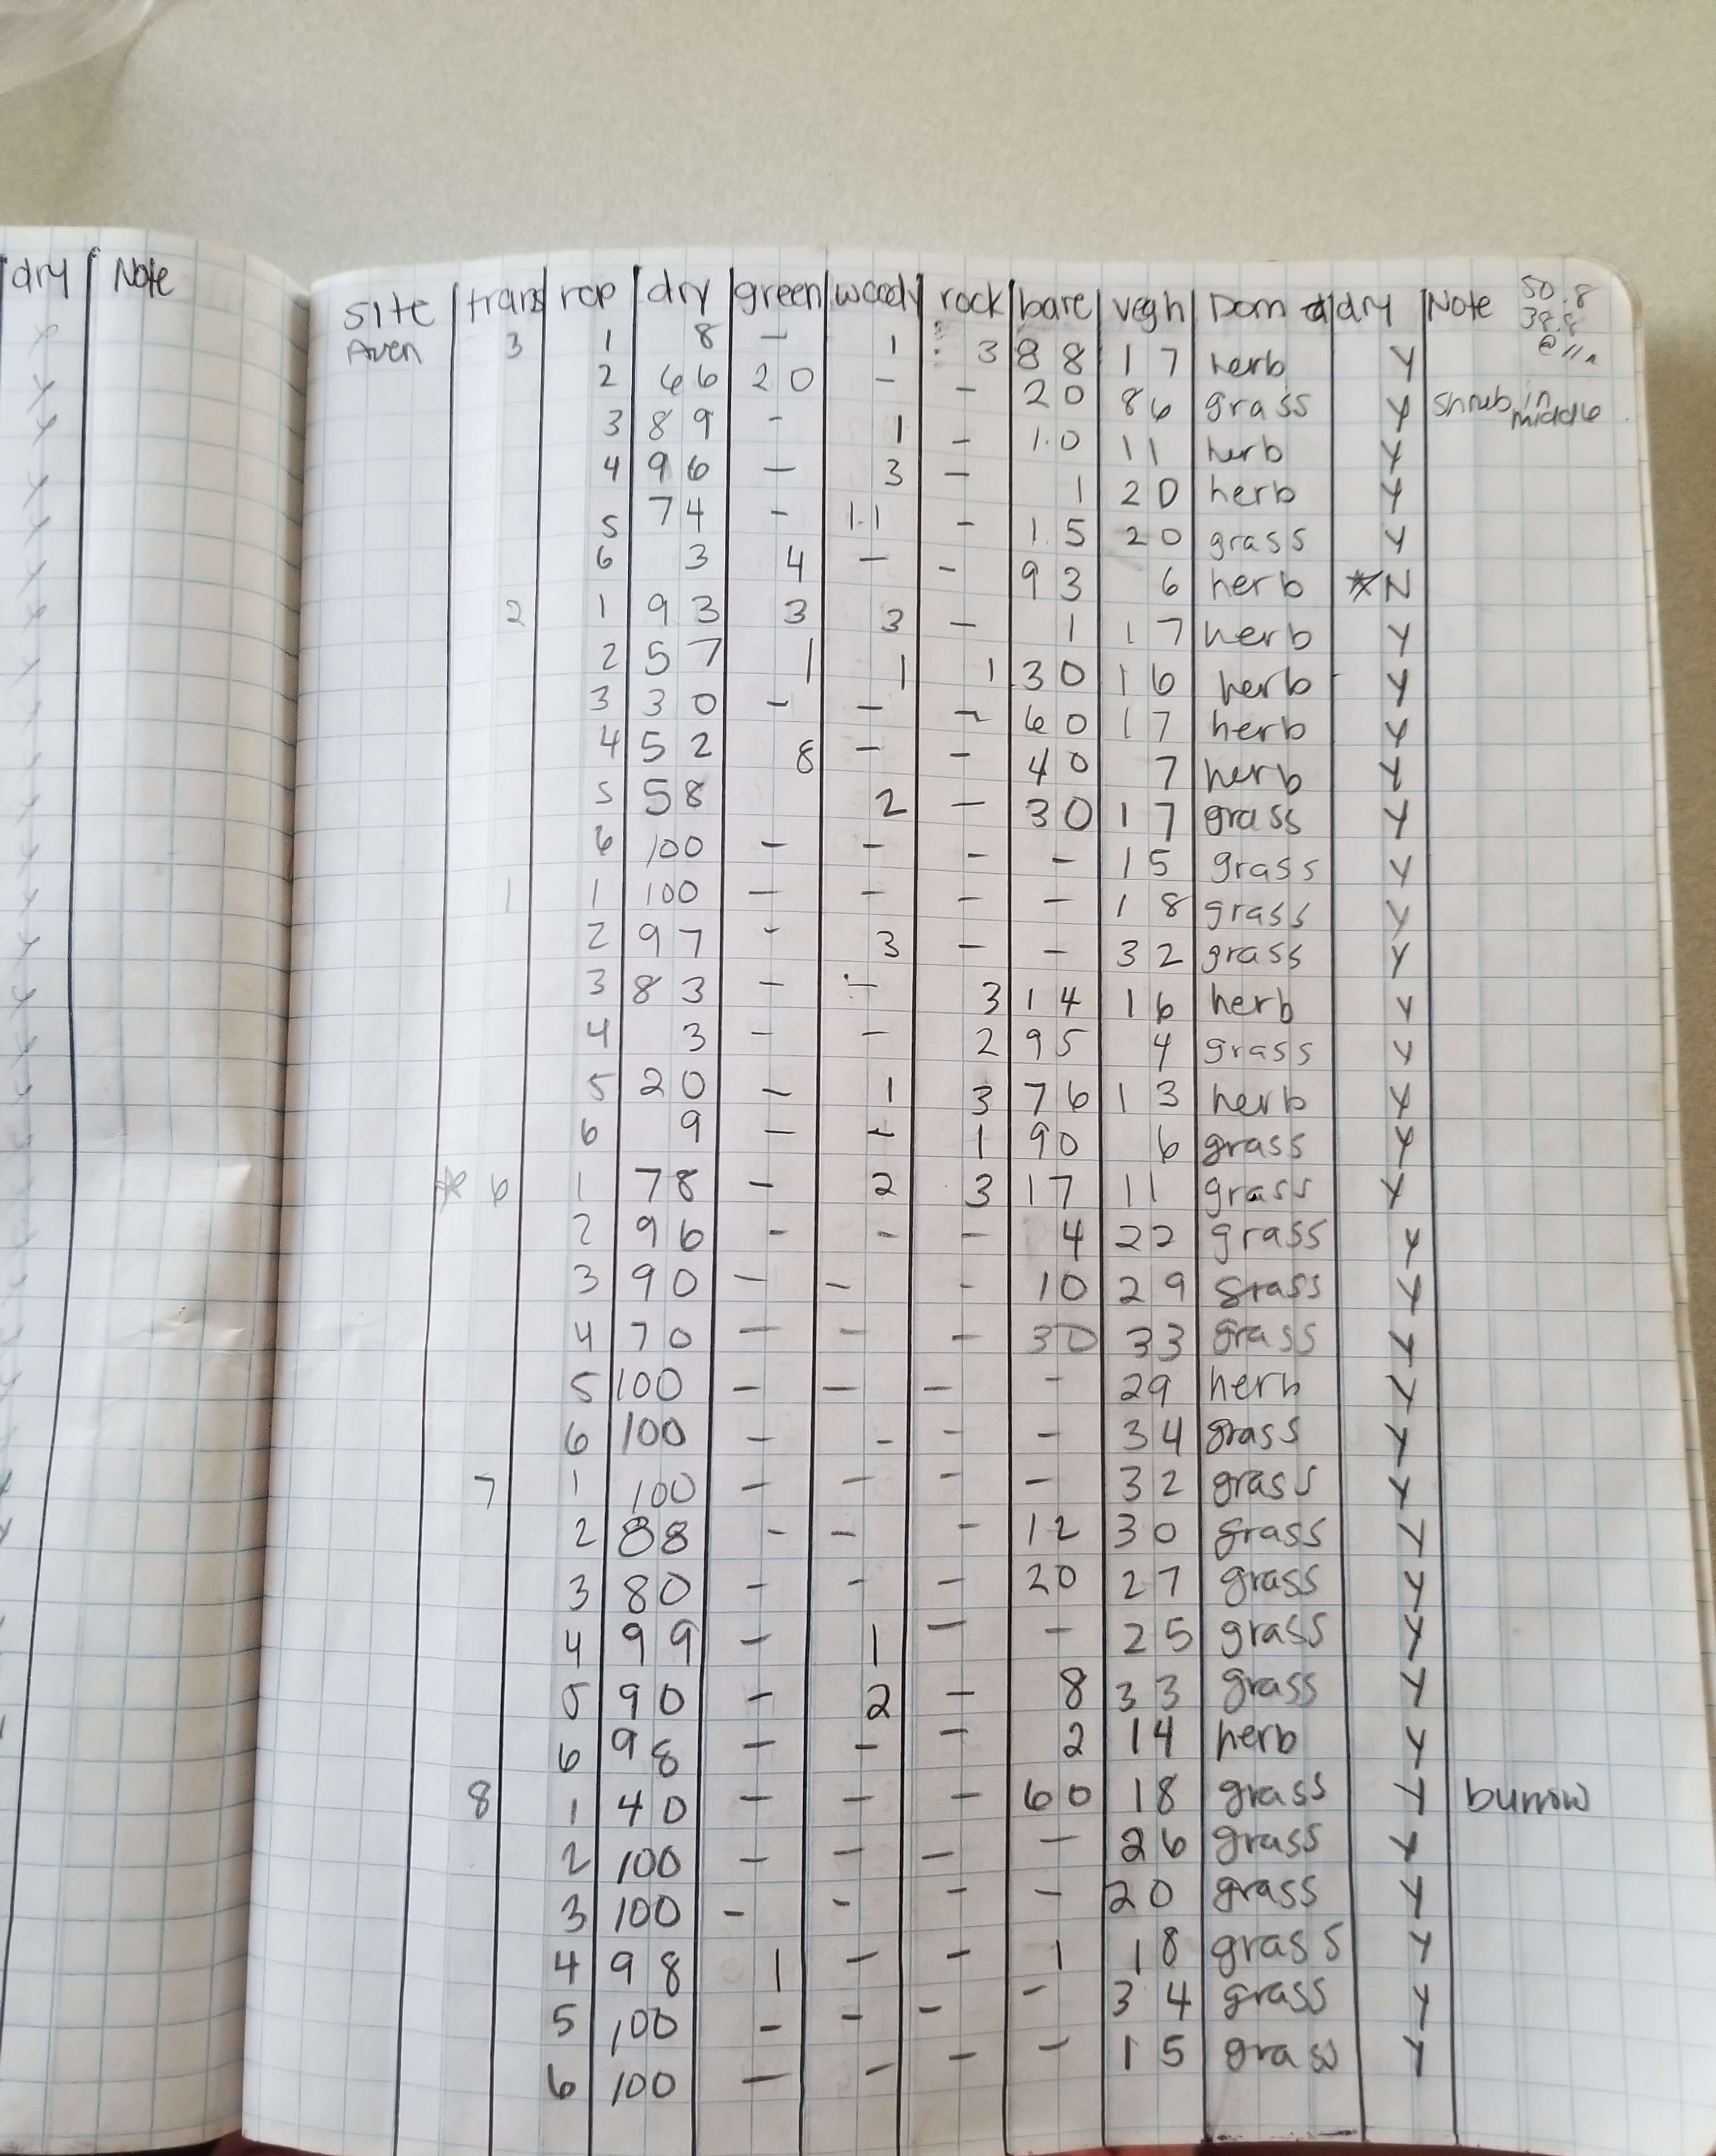 dry Note
site trans rep dry green woody rock bare vegh Dom dry Note 50.8
38.8
Aven 3 1 8 - 1 3 88 17 herb Y
2 66 20 - - 20 86 grass Y shrub in middle
3 89 - 1 - 10 11 herb Y
4 96 - 3 - 1 20 herb Y
5 74 - 11 - 15 20 grass Y
6 3 4 - - 93 6 herb *N
2 1 93 3 3 - 1 17 herb Y
2 57 1 1 1 30 16 herb Y
3 30 - - - 60 17 herb Y
4 52 8 - - 40 7 herb Y
5 58 2 - 30 17 grass Y
6 100 - - - - 15 grass Y
1 1 100 - - - - 18 grass Y
2 97 - 3 - - 32 grass Y
3 83 - - 3 14 16 herb Y
4 3 - - 2 95 4 grass Y
5 20 - 1 3 76 13 herb Y
6 9 - - 1 90 6 grass Y
* 6 1 78 - 2 3 17 11 grass Y
2 96 - - - 4 22 grass Y
3 90 - - - 10 29 grass Y
4 70 - - - 30 33 grass Y
5 100 - - - - 29 herb Y
6 100 - - - - 34 grass Y
7 1 100 - - - - 32 grass Y
2 88 - - - 12 30 grass Y
3 80 - - - 20 27 grass Y
4 99 - 1 - - 25 grass Y
5 90 - 2 - 8 33 grass Y
6 98 - - - 2 14 herb Y
8 1 40 - - - 60 18 grass Y burrow
2 100 - - - - 26 grass Y
3 100 - - - - 20 grass Y
4 98 1 - - 1 18 grass Y
5 100 - - - - 34 grass Y
6 100 - - - - 15 grass Y